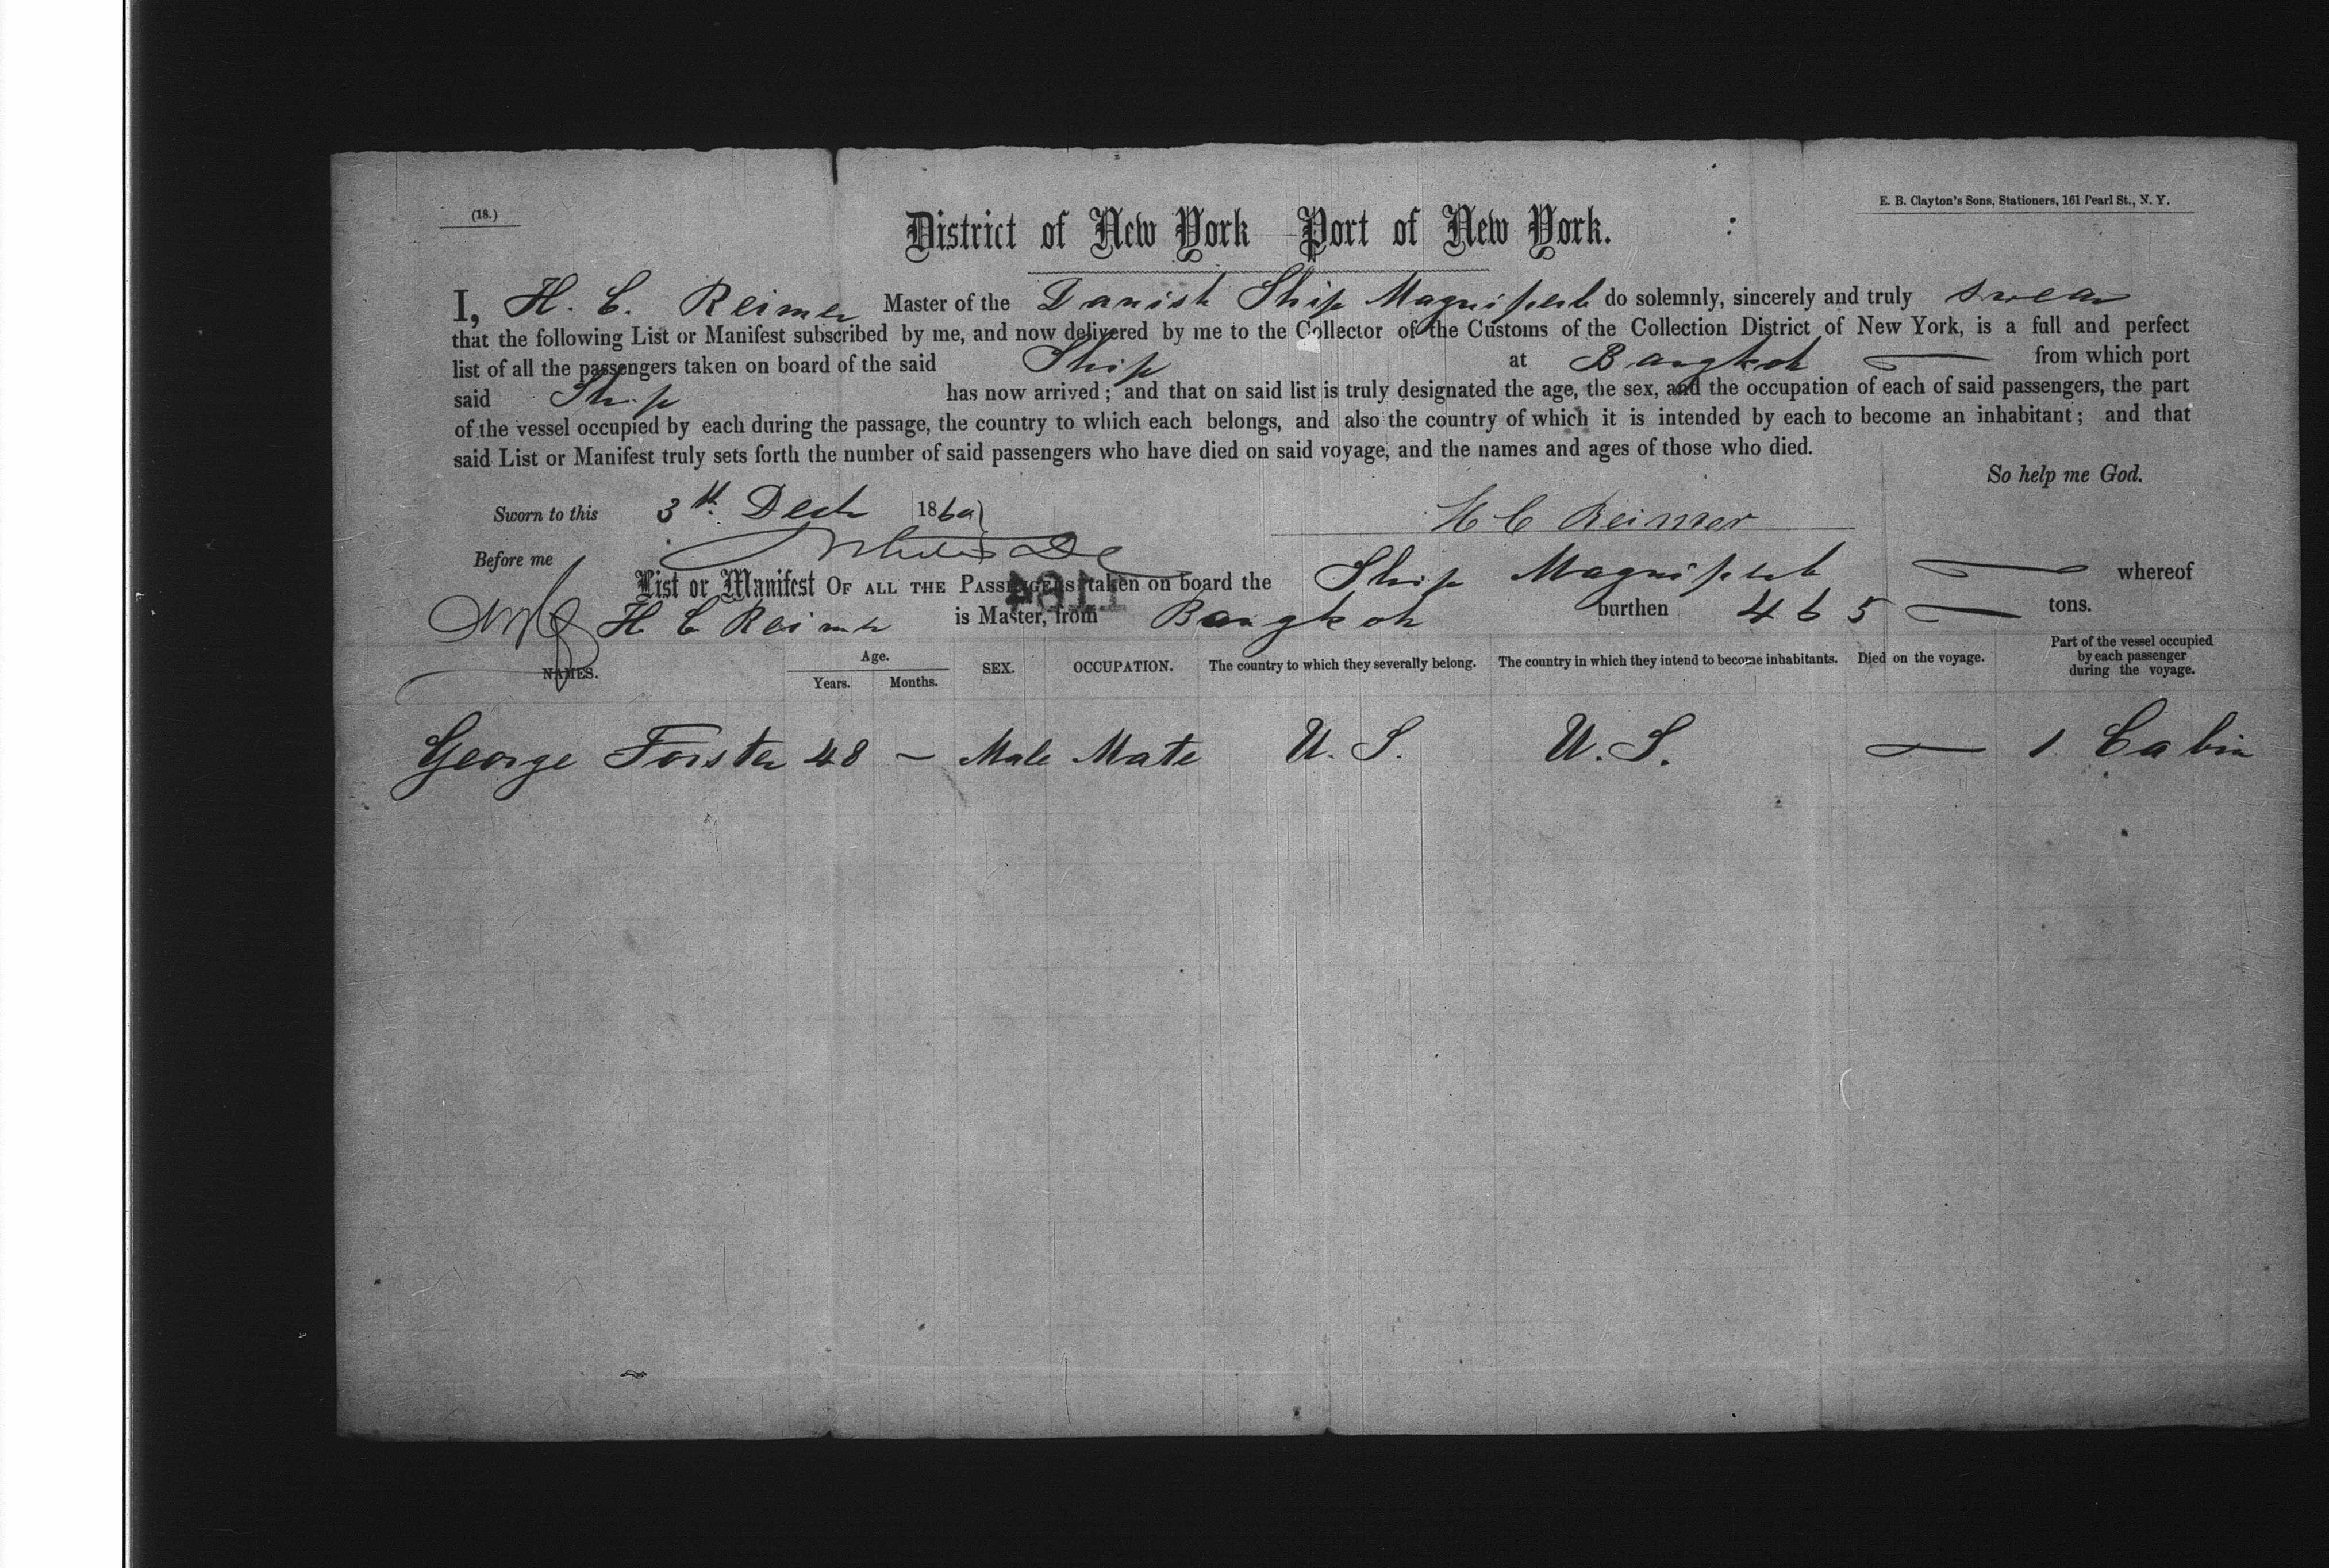 (18.)
E. B. Clayton's Sons, Stationers, 161 Pearl St., N. Y.
District of New York Port of New York.
I, H. C. Reimer Master of the Danish Ship do solemnly, sincerely and truly swear
that the following List or Manifest subscribed by me, and now delivered by me to the Collector of the Customs of the Collection District of New York, is a full and perfect
list of all the passengers taken on board of the said Ship at Bangkok from which port
said Ship has now arrived; and that on said list is truly designated the age, the sex, and the occupation of each of said passengers, the part
of the vessel occupied by each during the passage, the country to which each belongs, and also the country of which it is intended by each to become an inhabitant; and that
said List or Manifest truly sets forth the number of said passengers who have died on said voyage, and the names and ages of those who died.
So help me God.
Sworn to this 3d. Dech 1869
H C Reimer
Before me
List or Manifest OF ALL THE PASSENGERS taken on board the Ship whereof
H C Reimer is Master, from Bangkok burthen 465 tons.
NAMES. Age. Years. Months. SEX. OCCUPATION. The country to which they severally belong. The country in which they intend to become inhabitants. Died on the voyage. Part of the vessel occupied by each passenger during the voyage.
George Forster 48 – Male Mate U. S. U. S. — 1 Cabin